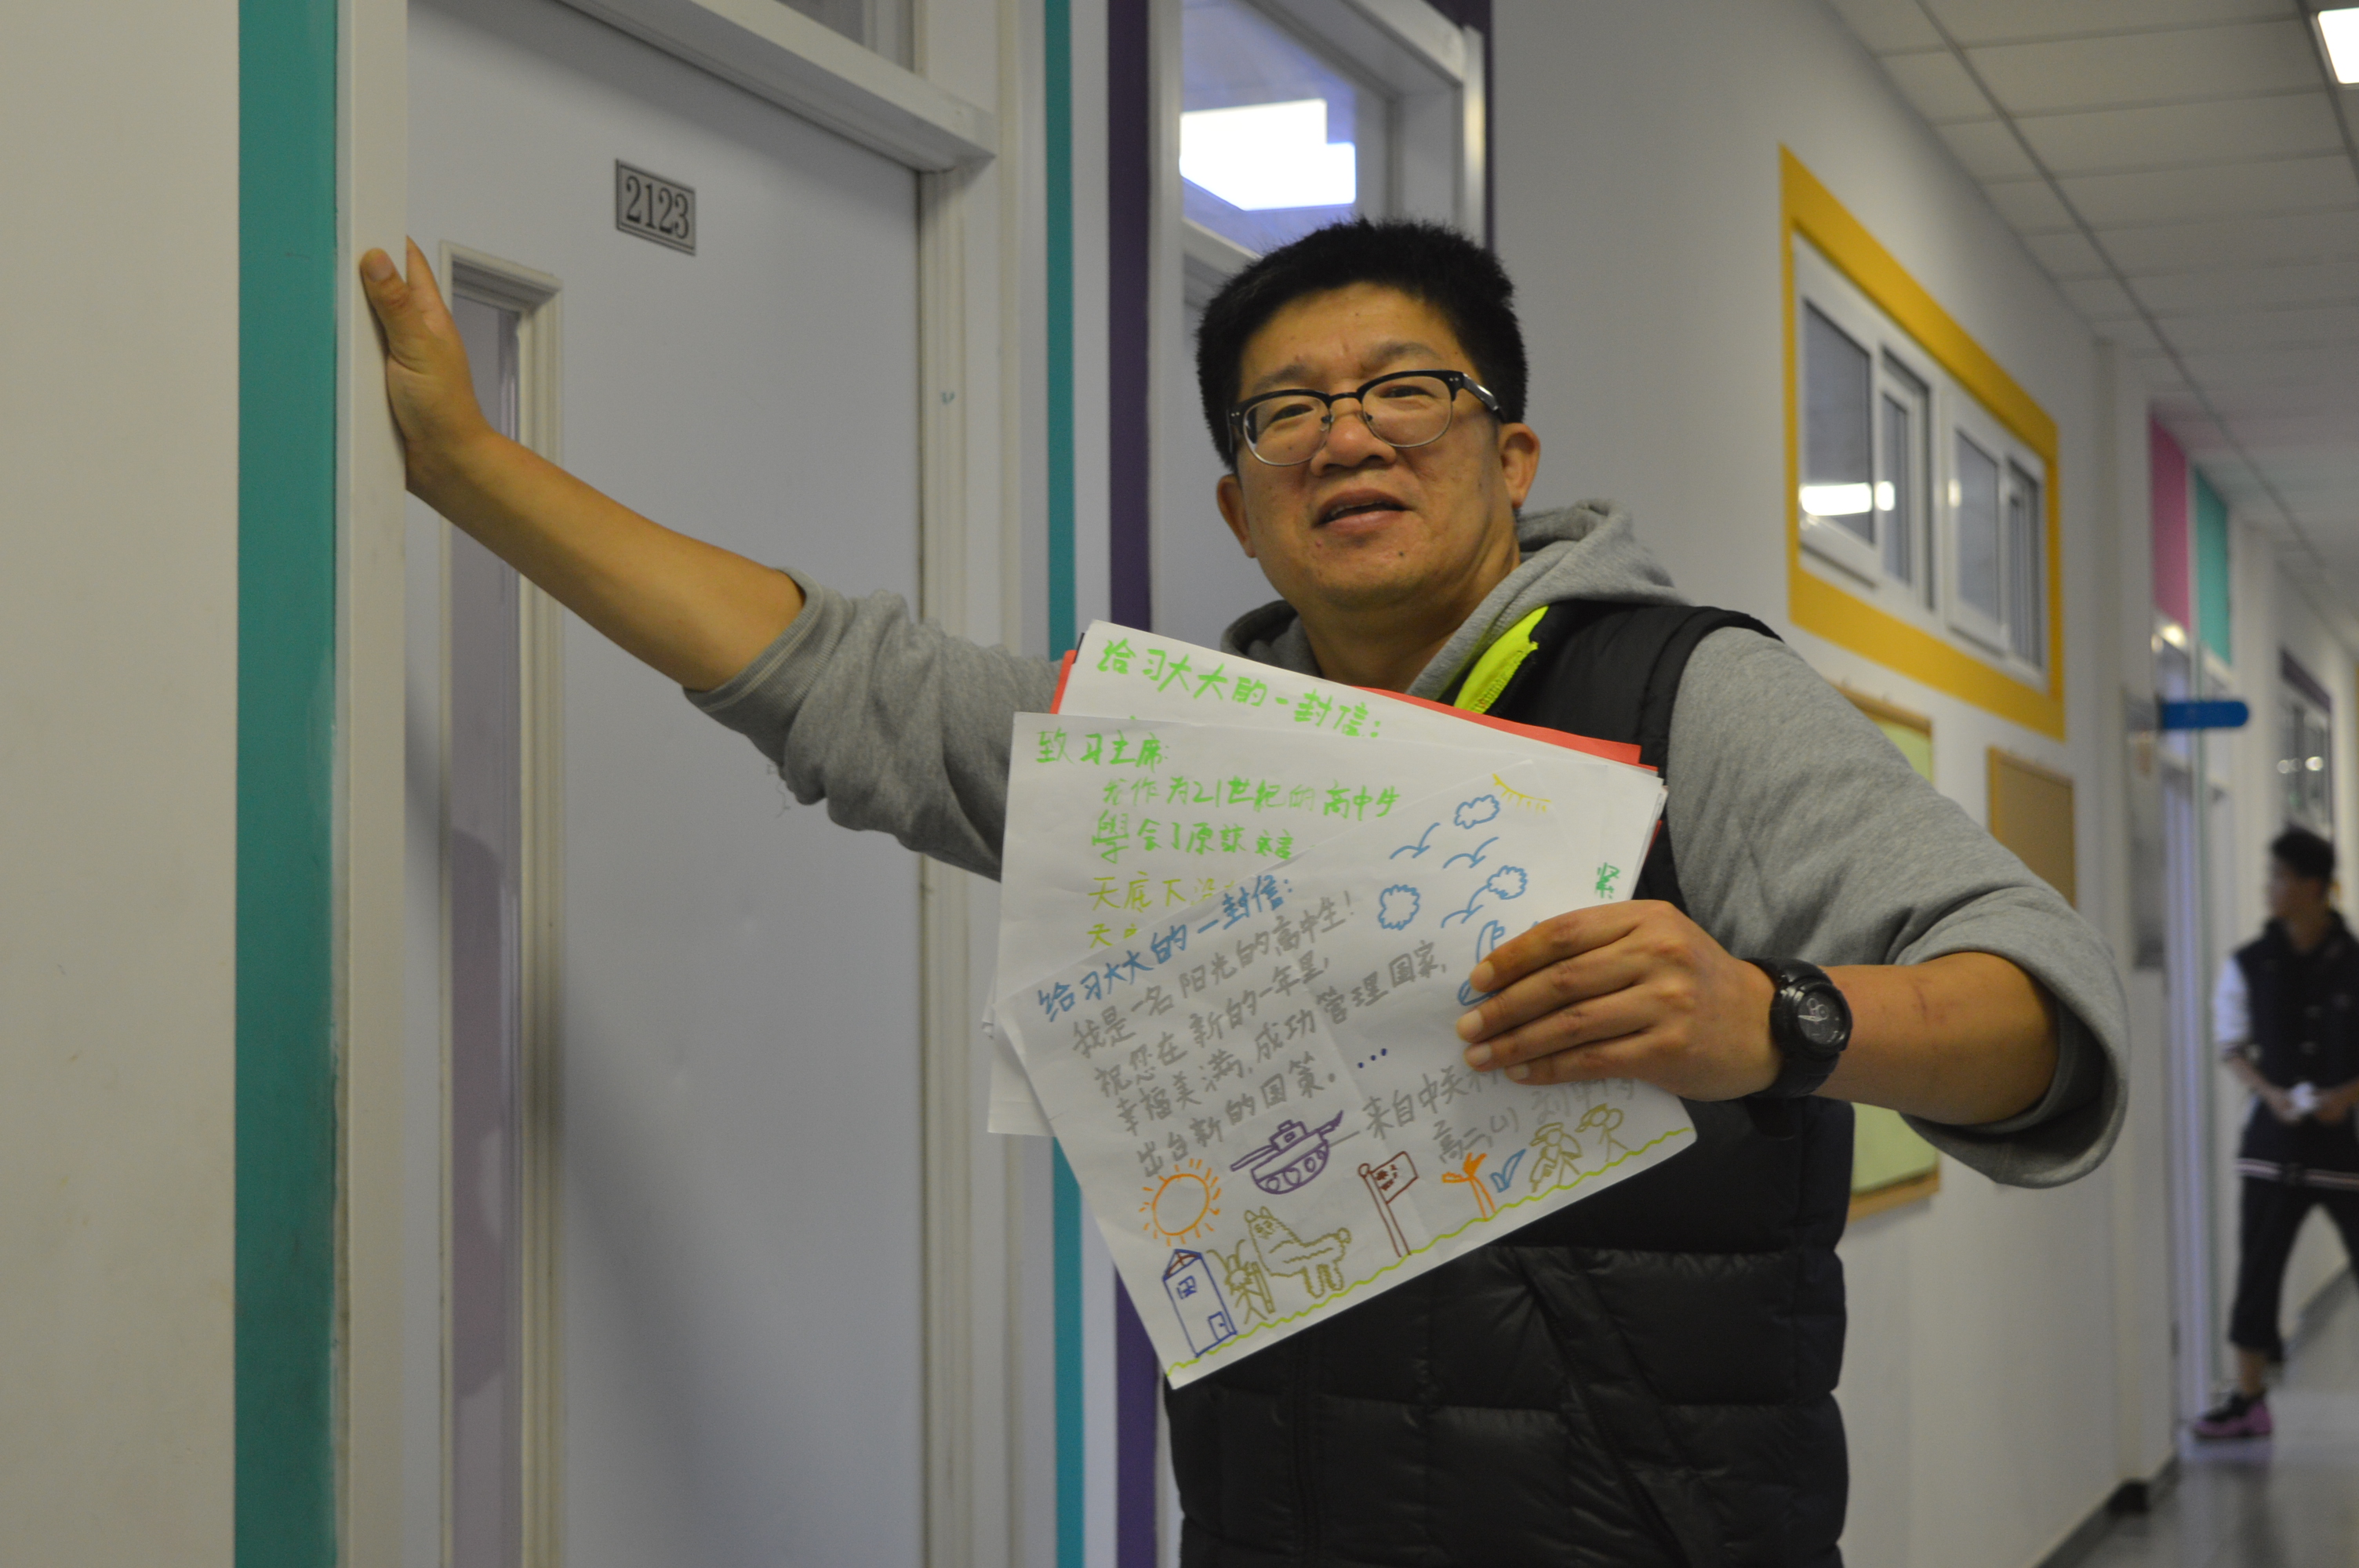 2123
给习大大的一封信:
致习主席:
作为21世纪的高中生
學会了原諒
天底下没
给习大大的一封信:
我是一名阳光的高中生!
祝您在新的一年里,
幸福美满,成功管理国家,
出台新的国策。...
来自中关村
高二(1)